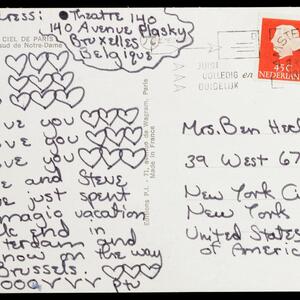 ress: Theatre 140
140 Avenue Plasky
Bruxelles
Belgique
CIEL DE PARIS
aud de Notre-Dame
ve you
ve you
ve you
e and Steve
e just spent
magic vacation
k end in
terdam and
now on the way
Brussels.
ooo
Editions P.I.
de Wagram, Paris
Made in France
JUIST
VOLLEDIG en
DUIDELIJK
45c
NEDERLAND
Mrs. Ben Hech
39 West 67
New York C
New York
United States
of America